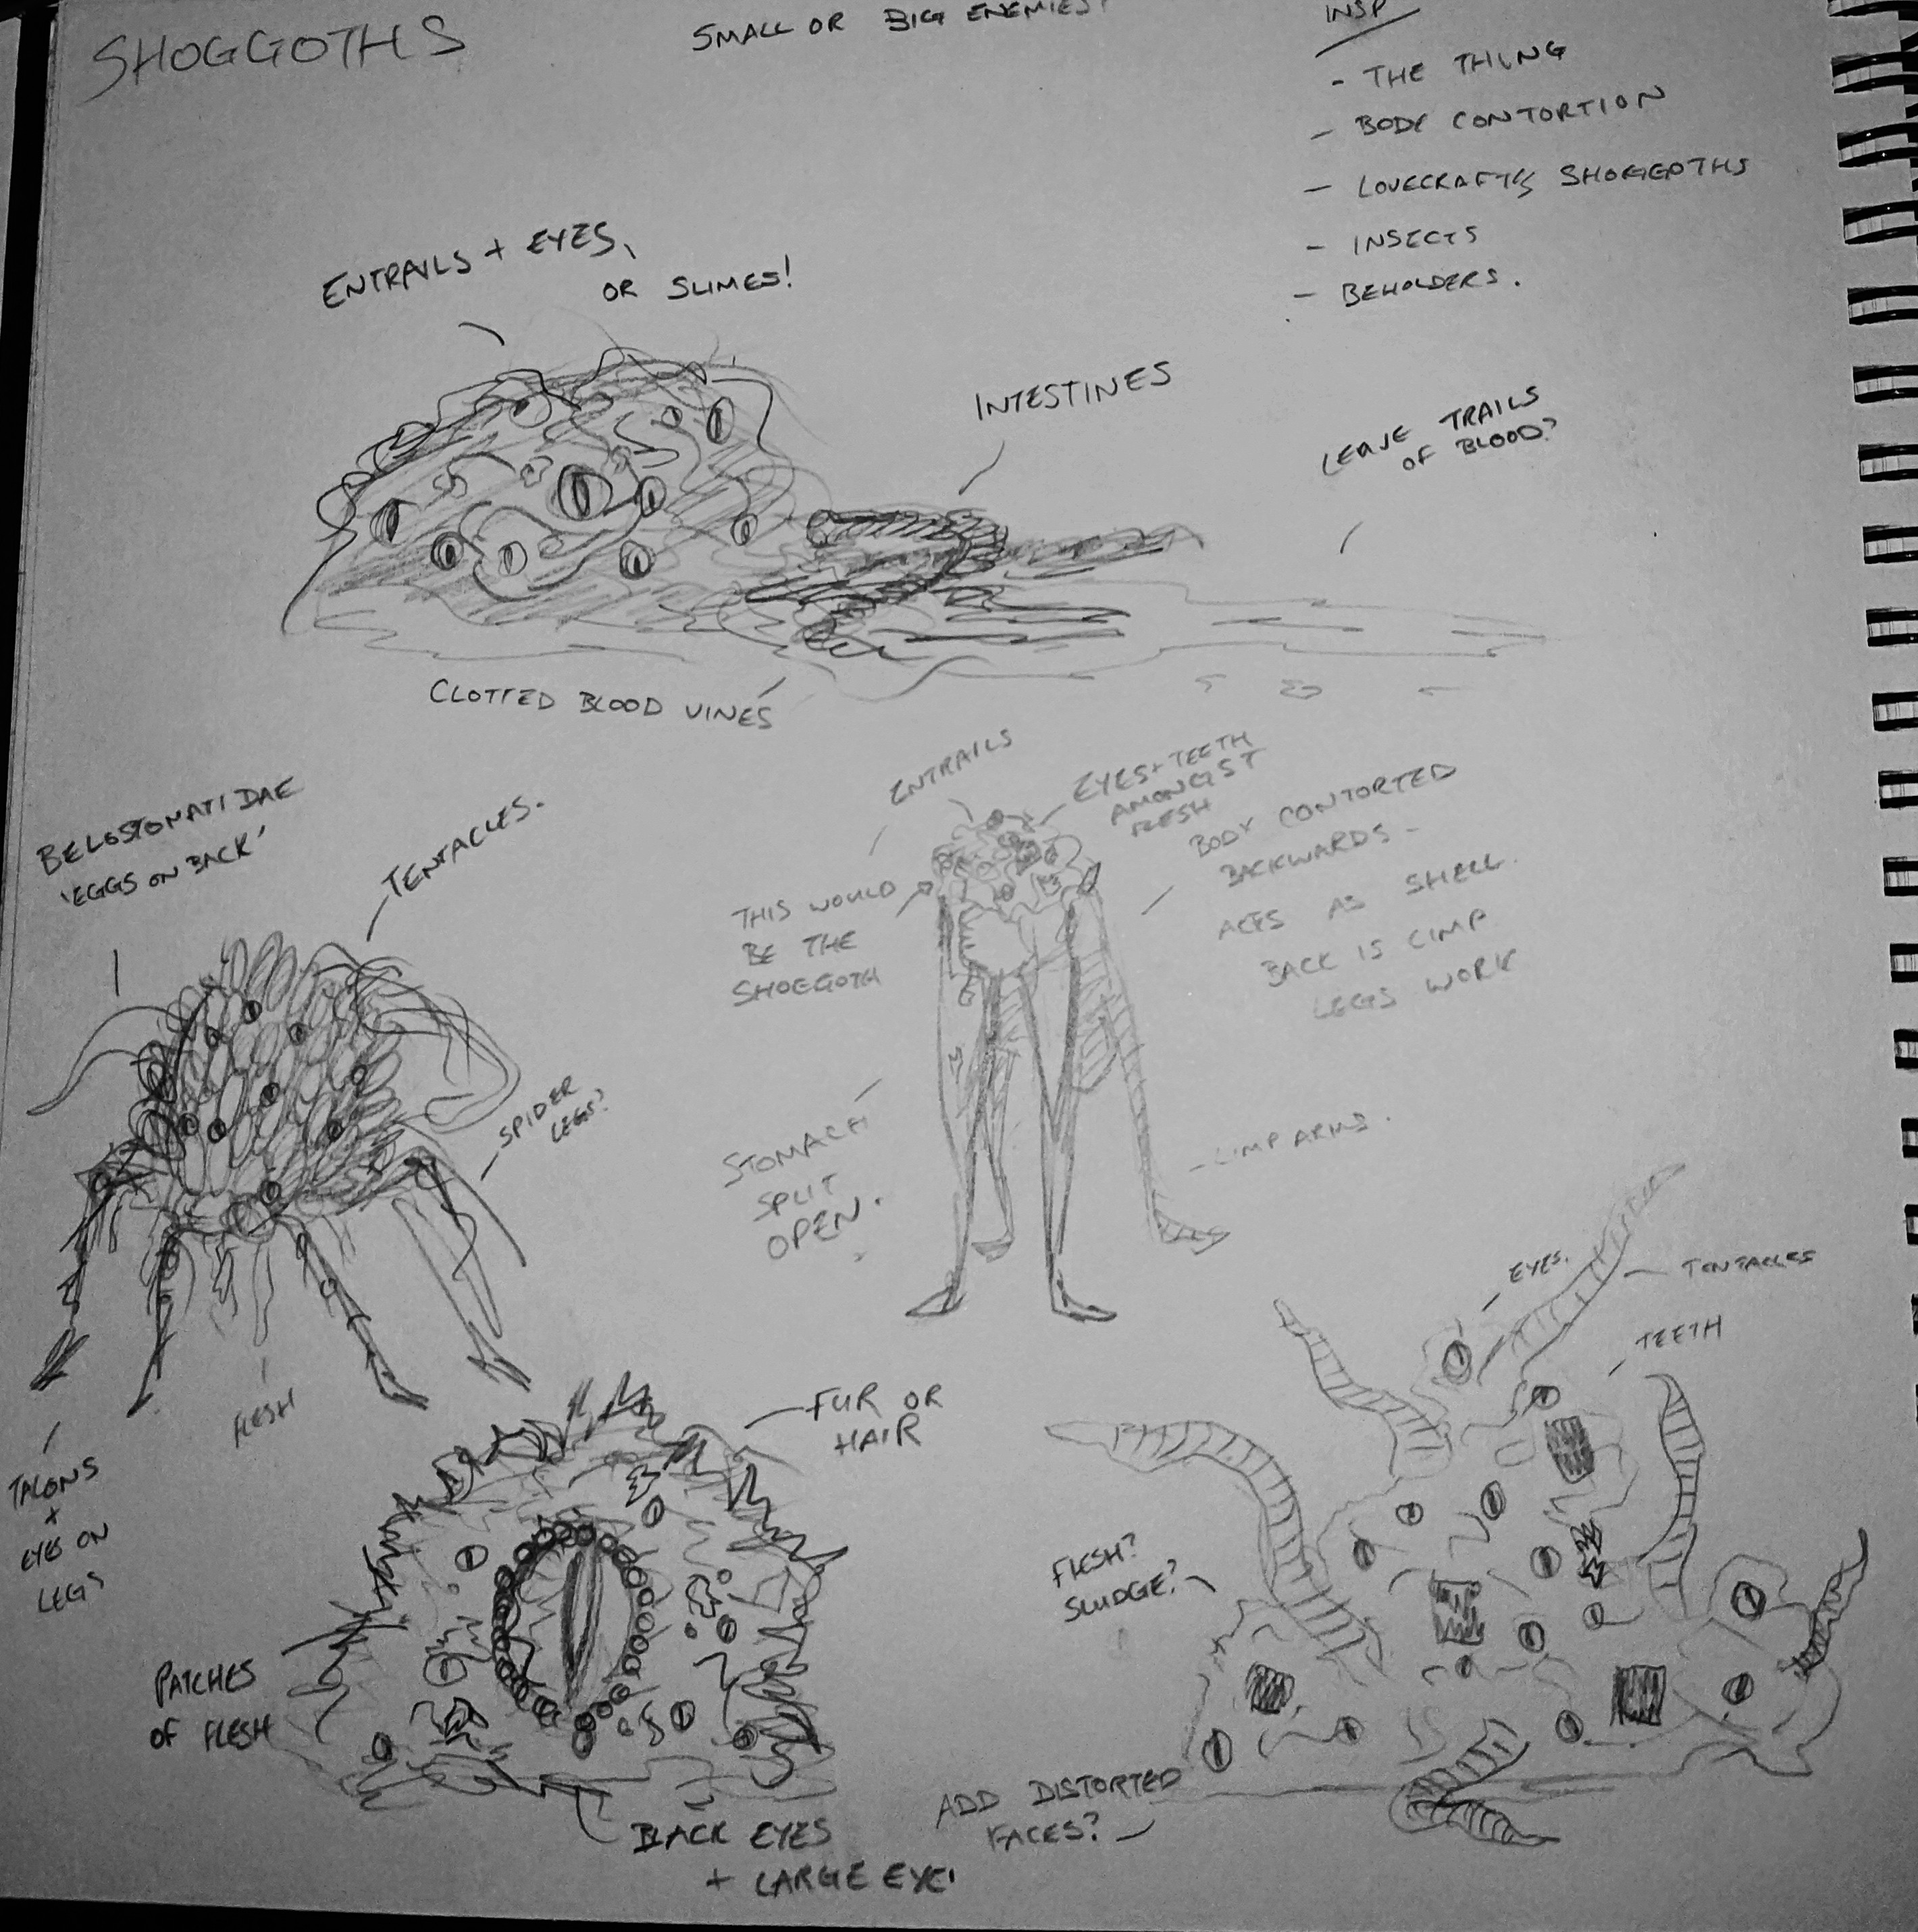 SHOGGOTHS
SMALL OR BIG ENEMIES?
INSP
- THE THING
- BODY CONTORTION
- LOVECRAFT'S SHOGGOTHS
- INSECTS
- BEHOLDERS.
ENTRAILS + EYES,
OR SLIMES!
INTESTINES
LEAVE TRAILS
OF BLOOD?
CLOTTED BLOOD VINES
BELOSTOMATIDAE
'EGGS ON BACK'
TENTACLES.
SPIDER
LEGS?
FLESH
TALONS
+
EYES ON
LEGS
ENTRAILS
EYES + TEETH
AMONGST
FLESH
BODY CONTORTED
BACKWARDS -
ACTS AS SHELL.
BACK IS LIMP
LEGS WORK
THIS WOULD
BE THE
SHOGGOTH
STOMACH
SPLIT
OPEN.
- LIMP ARMS.
FUR OR
HAIR
PATCHES
OF FLESH
BLACK EYES
+ LARGE EYE!
EYES.
TENTACLES
TEETH
FLESH?
SLUDGE?
ADD DISTORTED
FACES?